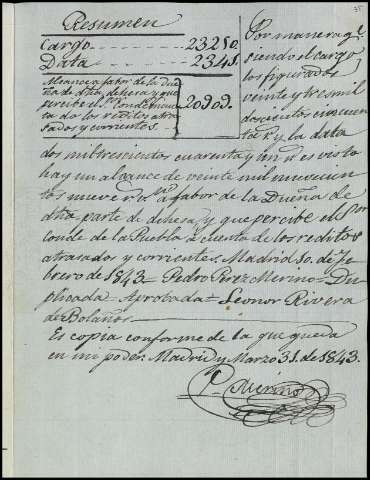 Resumen
Cargo 23250.
Data 2341.
Alcance a fabor de la due
ña de dha dehesa y que
percibe el Sr Conde à cuen
ta de los reditos atra
sados y corrientes.
20909.
Por manera qe
siendo el cargo
los figurados
veinte y tres mil
doscientos cincuen
ta Rs y la data
dos mil trescientos cuarenta y un rs es visto
hay un alcance de veinte mil novecien
tos nueve rs vn à fabor de la Dueña de
dha parte de dehesa, y que percibe el Sor
Conde de la Puebla à cuenta de los reditos
atrasados y corrientes. Madrid 10 de Fe
brero de 1843= Pedro Perez Merino= Du
plicada= Aprobada= Leonor Rivera
de Bolaños
Es copia conforme de la que queda
en mi poder. Madrid y Marzo 31. de 1843.
P. Merino